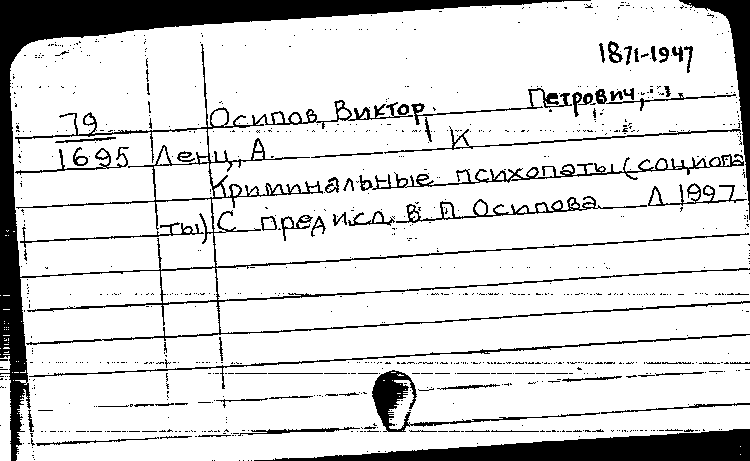 1871-1947
79 Осипов, Виктор Петрович,
1695 Ленц, А. К
Криминальные психопаты (социопа
ты) С предисл. В. П. Осипова Л 1997